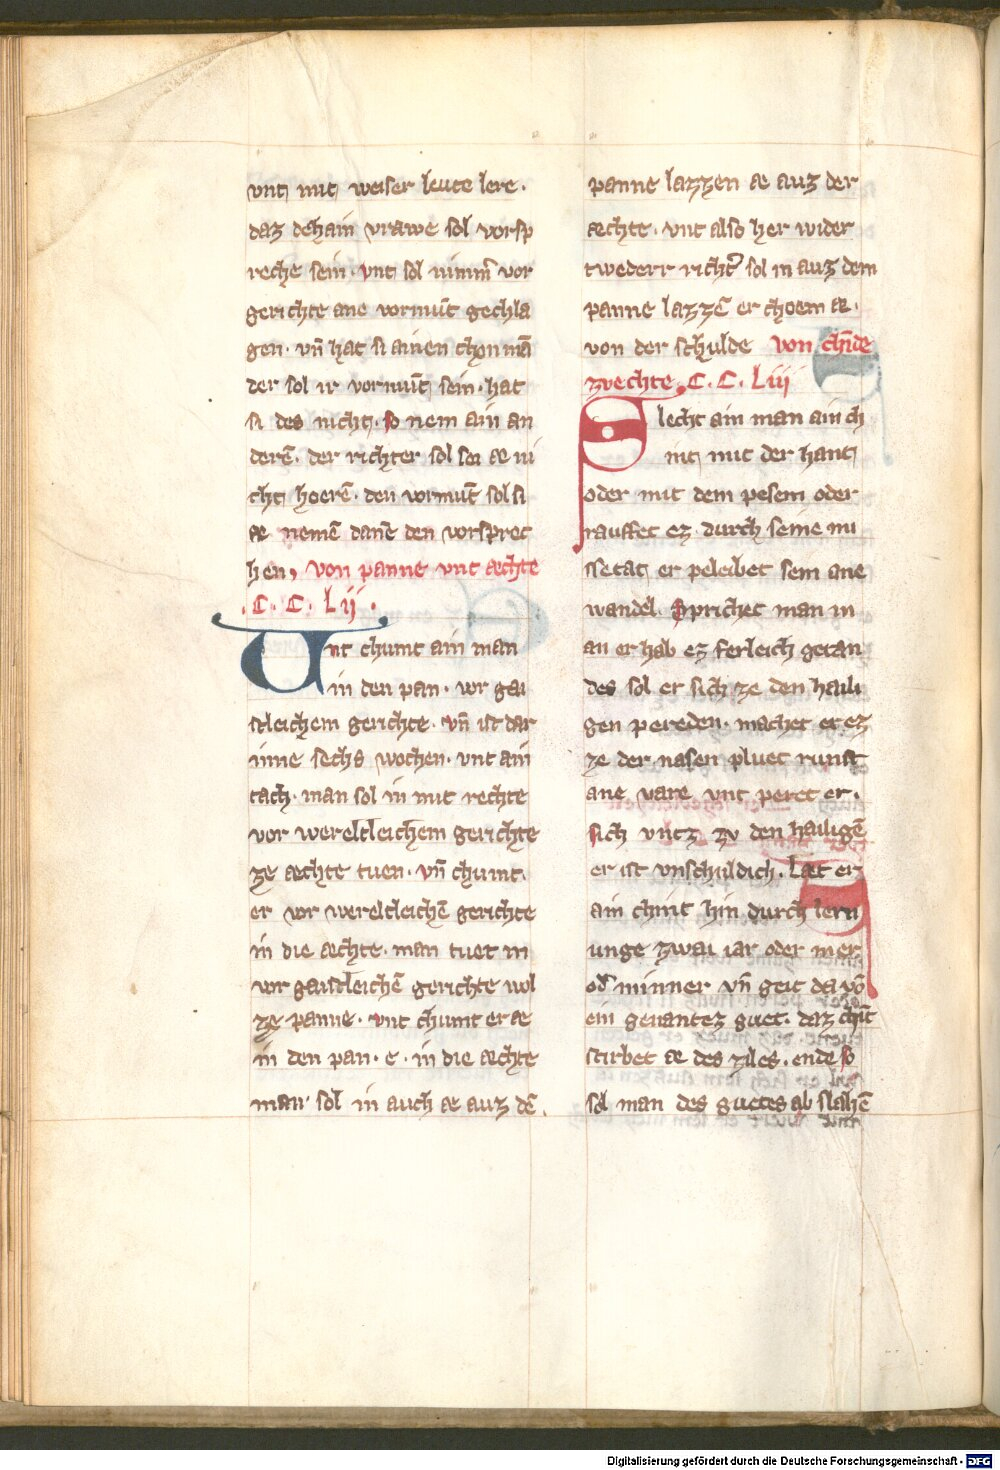 vnt mit weiser leute lere.
daz dehain vrawe sol vorsp
reche sein. vnt sol nimm̄ vor
gerichte ane vormūt gechla
gen. vn̄ hat si ainen chonmā
der sol ir vormūt sein. hat
si des nicht. so nem ain an
derē. der richter sol sei æ ni
cht hoerē. den vormūt sol si
æ nemē danē den vorsprec
hen, von panne vnt æchte
.C.C.Lij.
Vnt chumt ain man
in den pan. vor gai
stleichem gerichte. vn̄ ist dar
inne sechs wochen. vnt ain
tach. man sol in mit rechte
vor wereltleichem gerichte
ze æchte tuen. vn̄ chumt.
er vor wereltleichē gerichte
in die æchte. man tuet in
vor gaistleichē gerichte wol
ze panne. vnt chumt er æ
in den pan. e. in die æchte
man sol in auch æ auz dē.
panne lazzen æ auz der
æchte. vnt also her wider
twederr richt͛ sol in auz dem
panne lazzē er choem æ.
von der schulde von chīde
zvechte. C.C.Liij
Slecht ain man ain ch
int mit der hant
oder mit dem pesem oder
rauffet ez. durch seine mi
ssetat er peleibet sein ane
wandel. Sprichet man in
an er hab ez ferleich getan
des sol er sich ze den haili
gen pereden. machet er ez
ze der nasen pluet runst
ane vare vnt peret er.
sich vntz zv den hailigē
er ist vnschuldich. Læt er
ain chint hin durch lern
unge zwai iar oder mer
od͛ minner vn̄ geit da vō
ein genantez guet. daz chīt
stirbet æ des ziles. ende so
sol man des guetes ab slahē
Digitalisierung gefördert durch die Deutsche Forschungsgemeinschaft - DFG